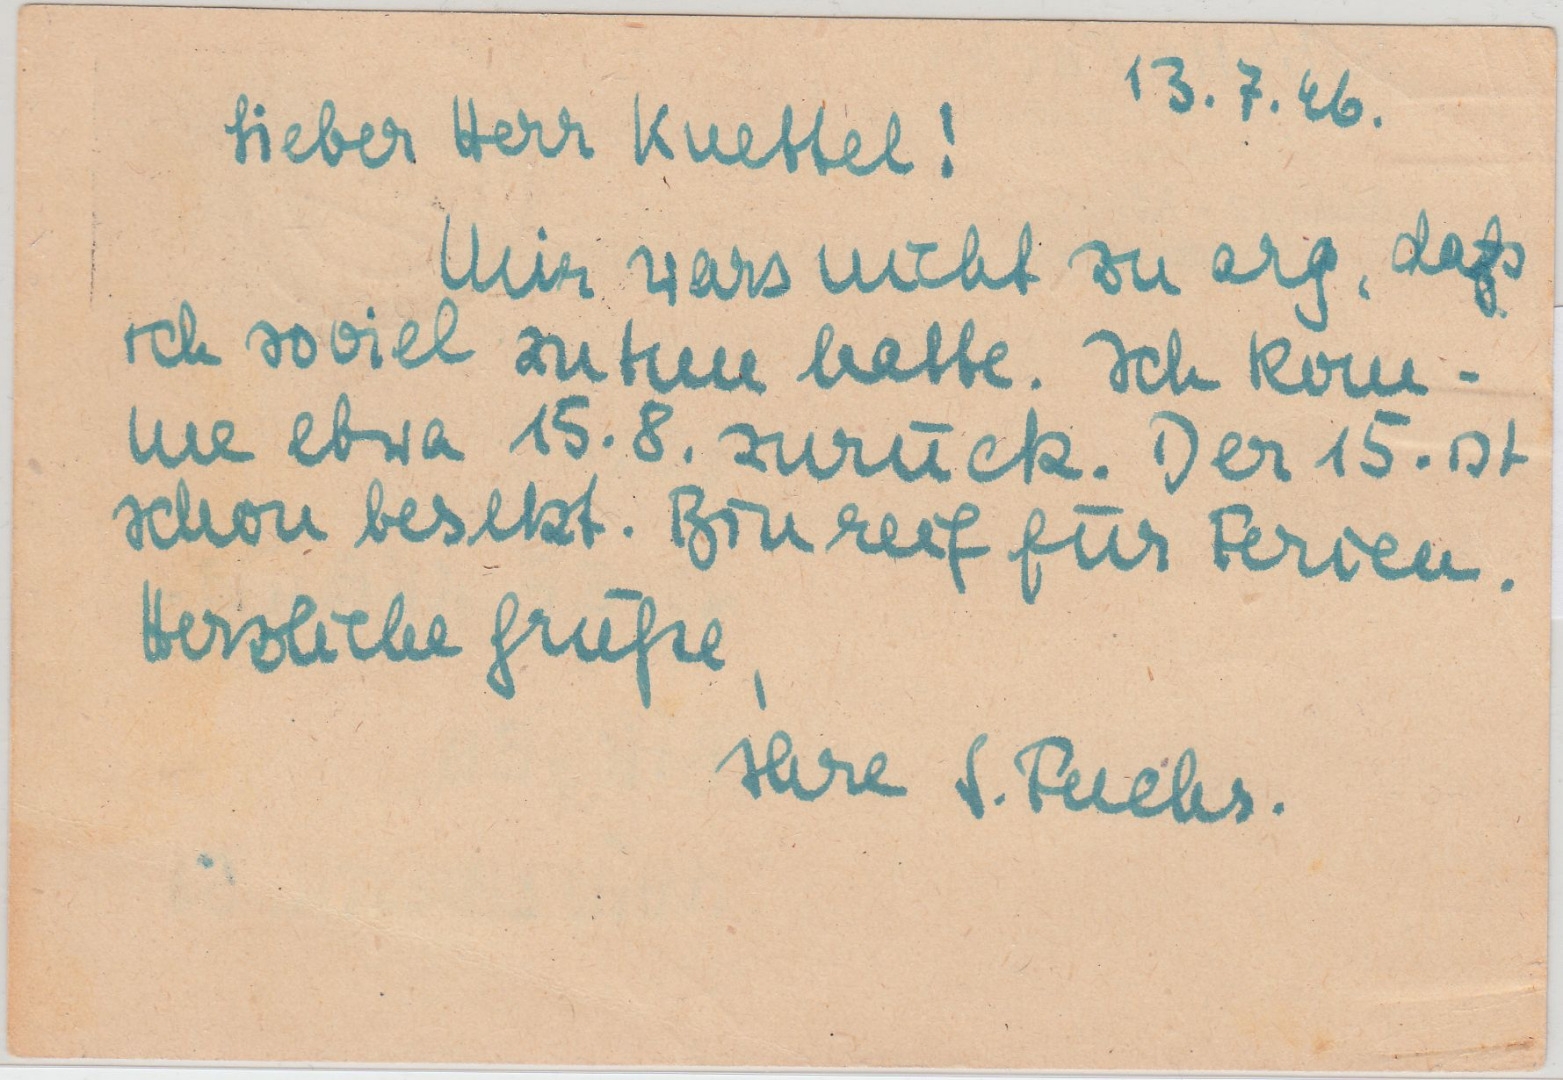 13.7.46.
Lieber Herr Knettel!
Mir wars nicht zu arg, daß
ich soviel zu tun hatte. Ich kom-
me etwa 15.8. zurück. Der 15. ist
schon besetzt. Bin reif für Ferien.
Herzliche Grüße,
Ihre S. Fuchs.